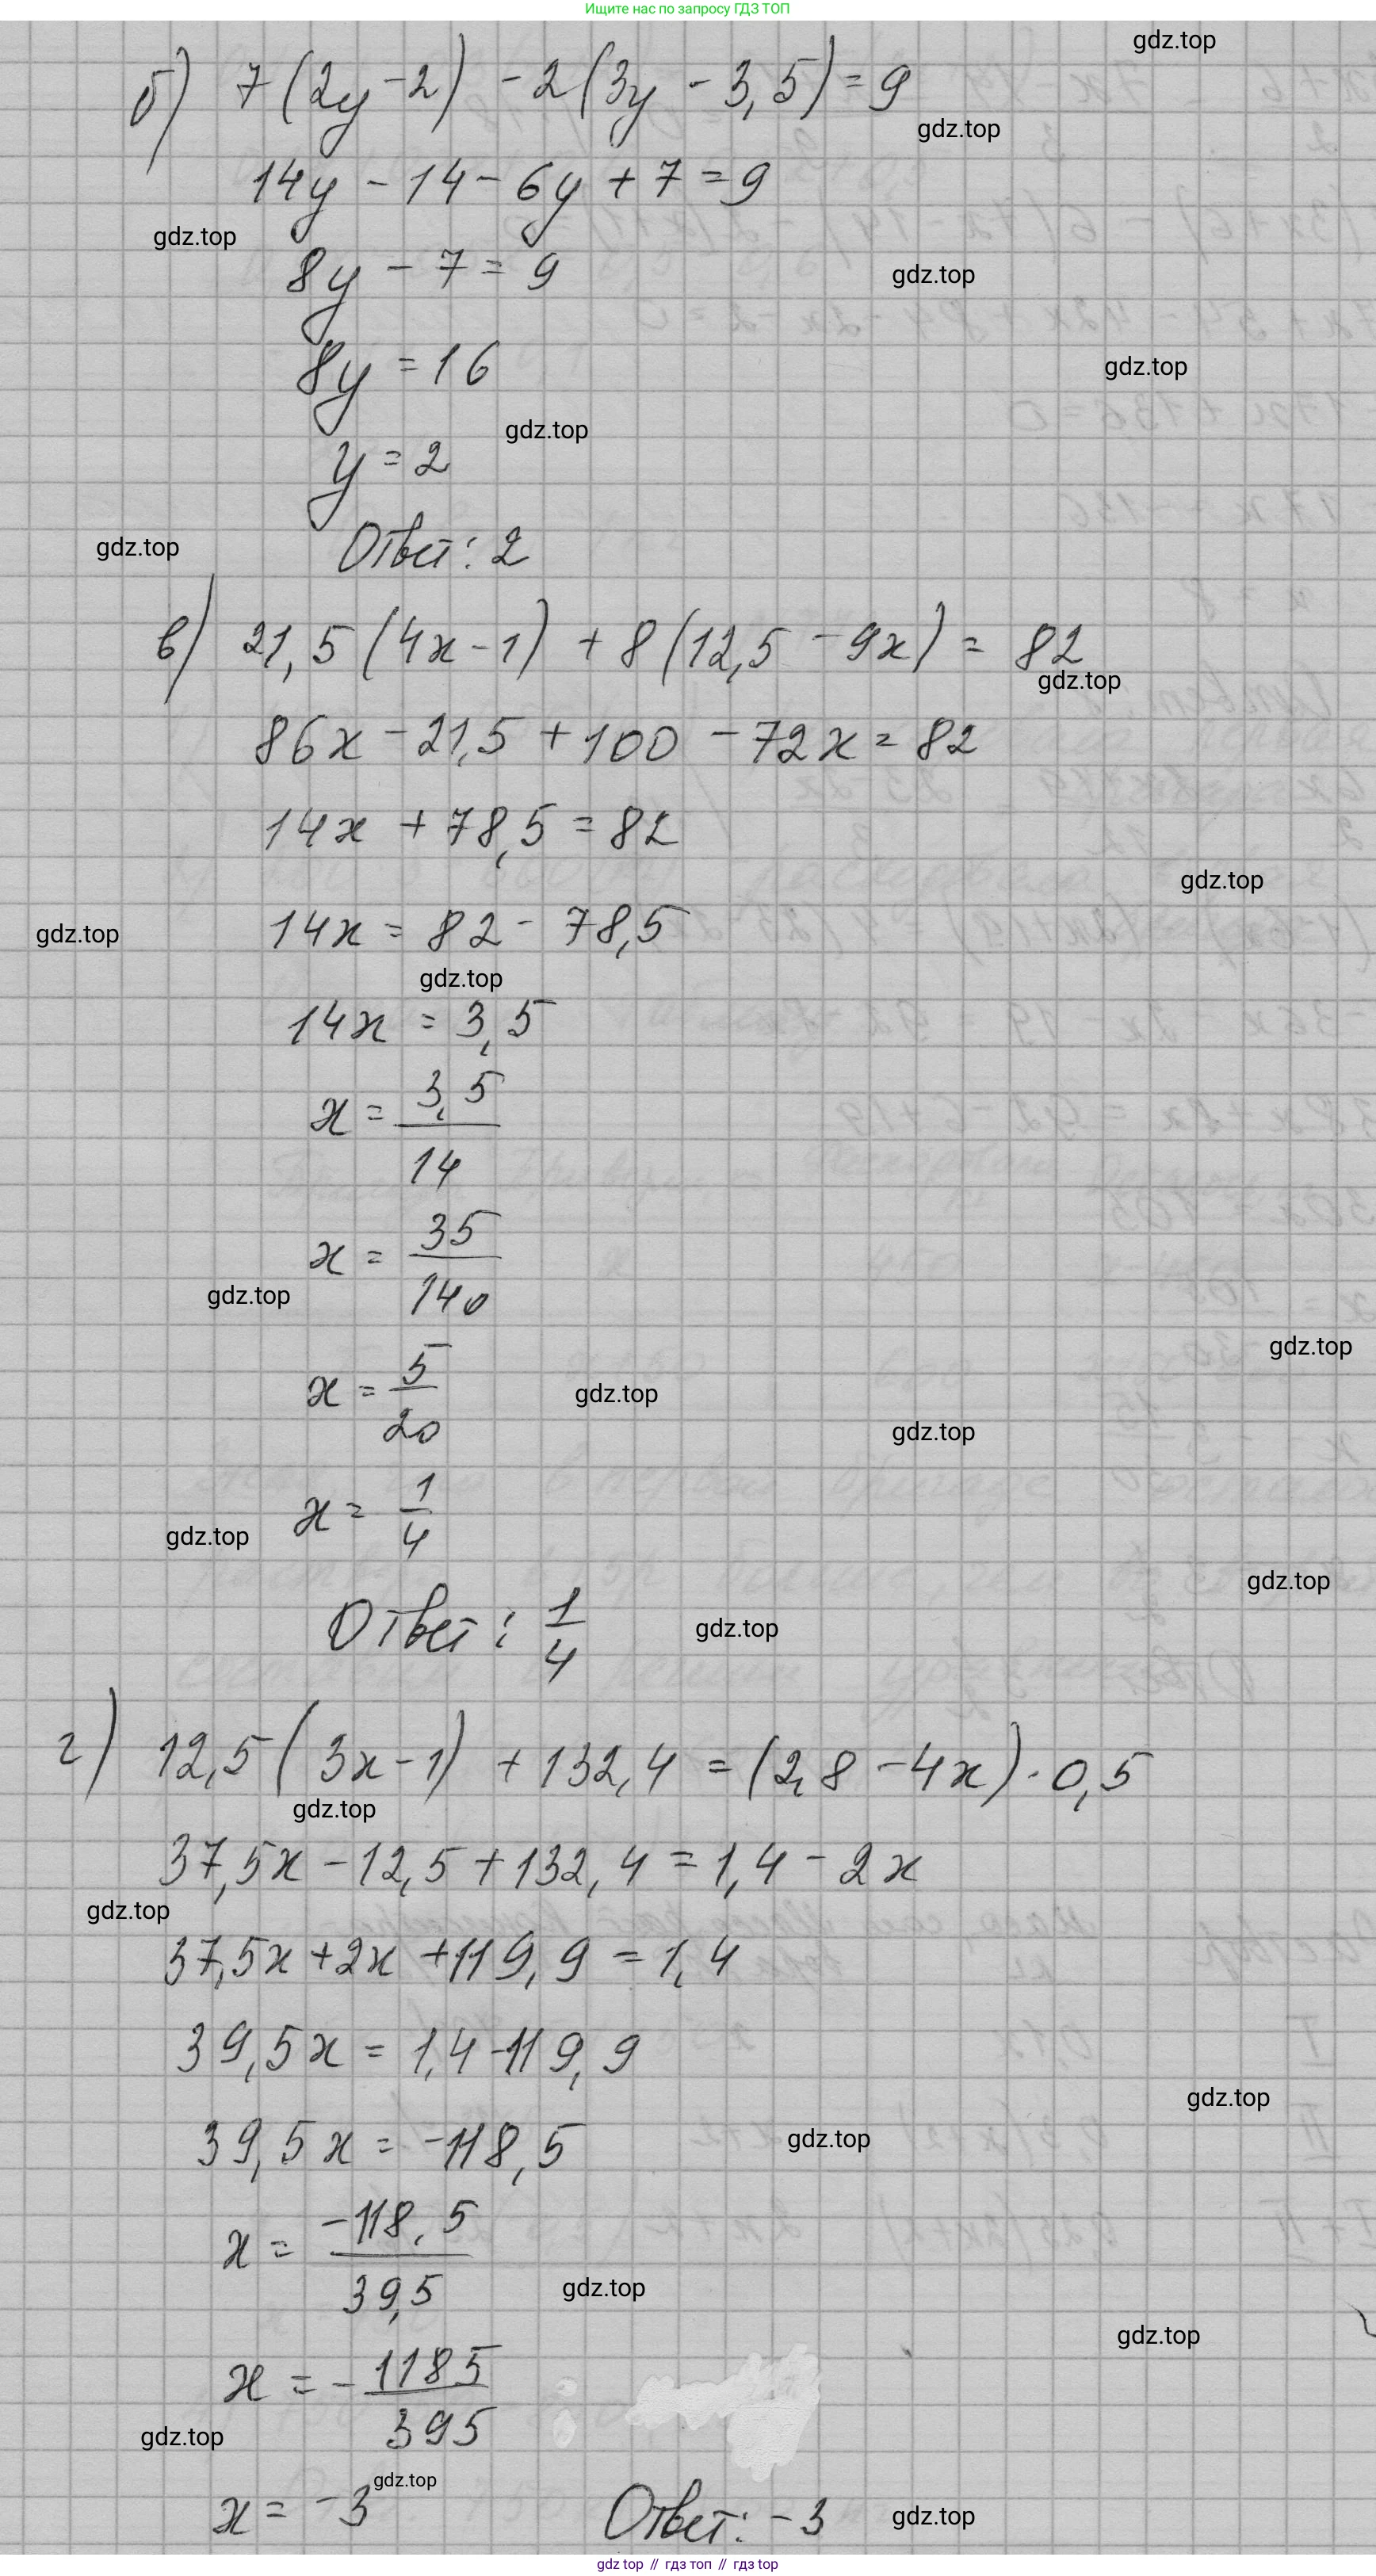 Ищите нас по запросу ГДЗ ТОП
gdz.top
б) 7(2y - 2) - 2(3y - 3,5) = 9
gdz.top
14y - 14 - 6y + 7 = 9
gdz.top
8y - 7 = 9
gdz.top
8y = 16
gdz.top
gdz.top
y = 2
gdz.top
Ответ: 2
в) 21,5(4x - 1) + 8(12,5 - 9x) = 82
gdz.top
86x - 21,5 + 100 - 72x = 82
14x + 78,5 = 82
gdz.top
14x = 82 - 78,5
gdz.top
gdz.top
14x = 3,5
x = 3,5/14
x = 35/140
gdz.top
gdz.top
x = 5/20
gdz.top
gdz.top
x = 1/4
gdz.top
gdz.top
Ответ: 1/4
gdz.top
г) 12,5(3x - 1) + 132,4 = (2,8 - 4x) · 0,5
gdz.top
37,5x - 12,5 + 132,4 = 1,4 - 2x
gdz.top
37,5x + 2x + 119,9 = 1,4
39,5x = 1,4 - 119,9
gdz.top
39,5x = -118,5
gdz.top
x = -118,5/39,5
gdz.top
gdz.top
x = - 1185/395
gdz.top
gdz.top
x = -3 Ответ: -3
gdz.top
gdz top // гдз топ // гдз top